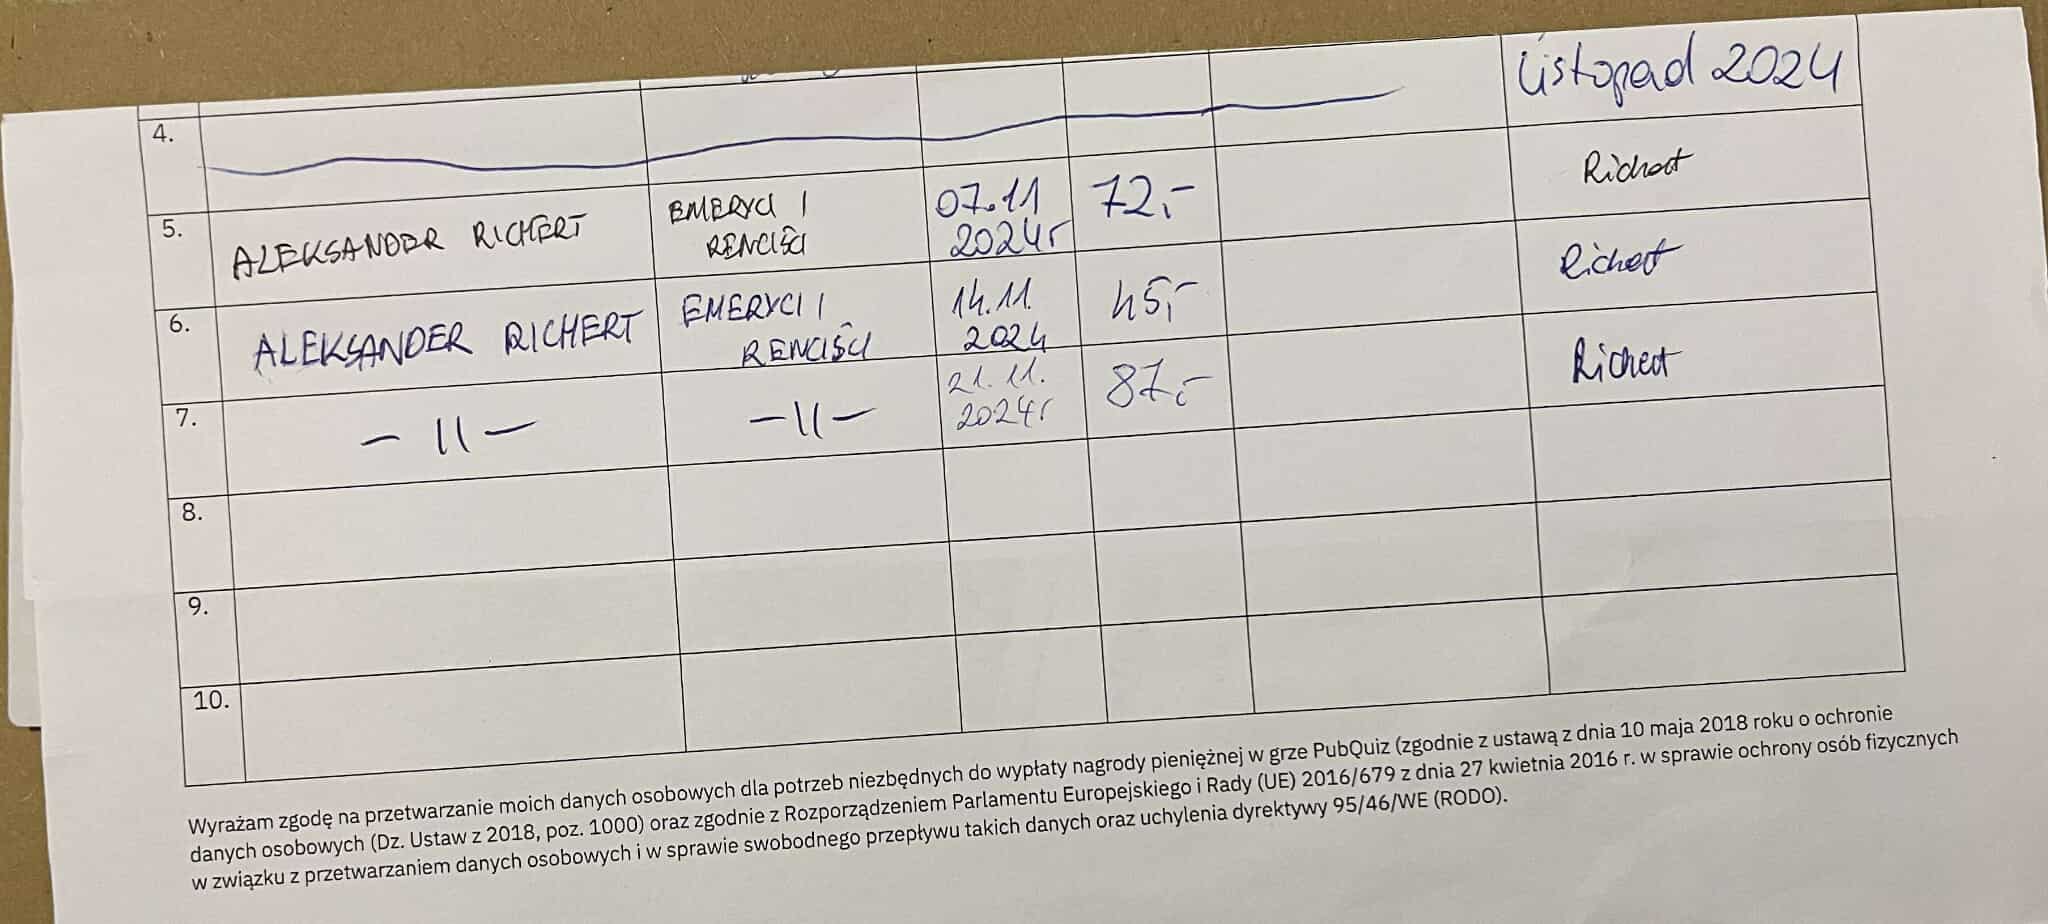 Listopad 2024
4.
5. ALEKSANDER RICHERT EMERYCI I RENCIŚCI 07.11 2024r 72,- Richert
6. ALEKSANDER RICHERT EMERYCI I RENCIŚCI 14.11. 2024 45,- Richert
7. -11- -11- 21.11. 2024r 87,- Richert
8.
9.
10.
Wyrażam zgodę na przetwarzanie moich danych osobowych dla potrzeb niezbędnych do wypłaty nagrody pieniężnej w grze PubQuiz (zgodnie z ustawą z dnia 10 maja 2018 roku o ochronie
danych osobowych (Dz. Ustaw z 2018, poz. 1000) oraz zgodnie z Rozporządzeniem Parlamentu Europejskiego i Rady (UE) 2016/679 z dnia 27 kwietnia 2016 r. w sprawie ochrony osób fizycznych
w związku z przetwarzaniem danych osobowych i w sprawie swobodnego przepływu takich danych oraz uchylenia dyrektywy 95/46/WE (RODO).